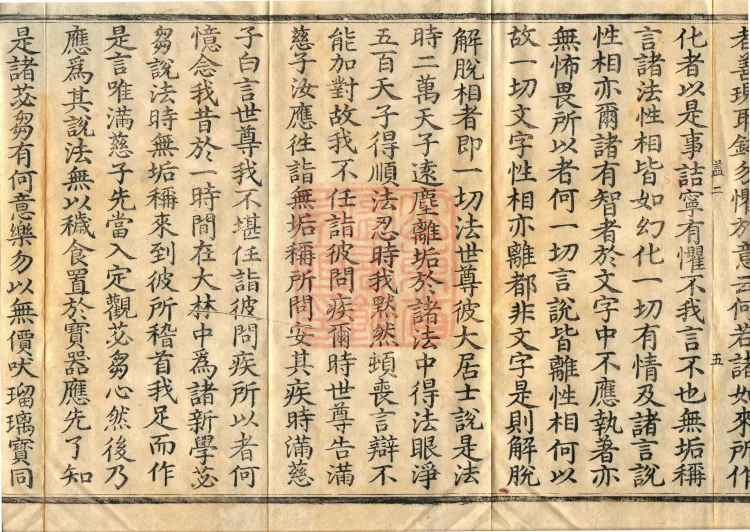 者善現取鉢勿懼於意云何若諸如來所作
盖二　五
化者以是事詰寧有懼不我言不也無垢稱
言諸法性相皆如幻化一切有情及諸言說
性相亦爾諸有智者於文字中不應執著亦
無怖畏所以者何一切言說皆離性相何以
故一切文字性相亦離都非文字是則解脫
解脫相者即一切法世尊彼大居士說是法
時二萬天子遠塵離垢於諸法中得法眼淨
五百天子得順法忍時我默然頓喪言辯不
能加對故我不任詣彼問疾爾時世尊告滿
慈子汝應往詣無垢稱所問安其疾時滿慈
子白言世尊我不堪任詣彼問疾所以者何
憶念我昔於一時間在大林中為諸新學苾
芻說法時無垢稱來到彼所稽首我足而作
是言唯滿慈子先當入定觀苾芻心然後乃
應為其說法無以穢食置於寶器應先了知
是諸苾芻有何意樂勿以無價吠瑠璃寶同